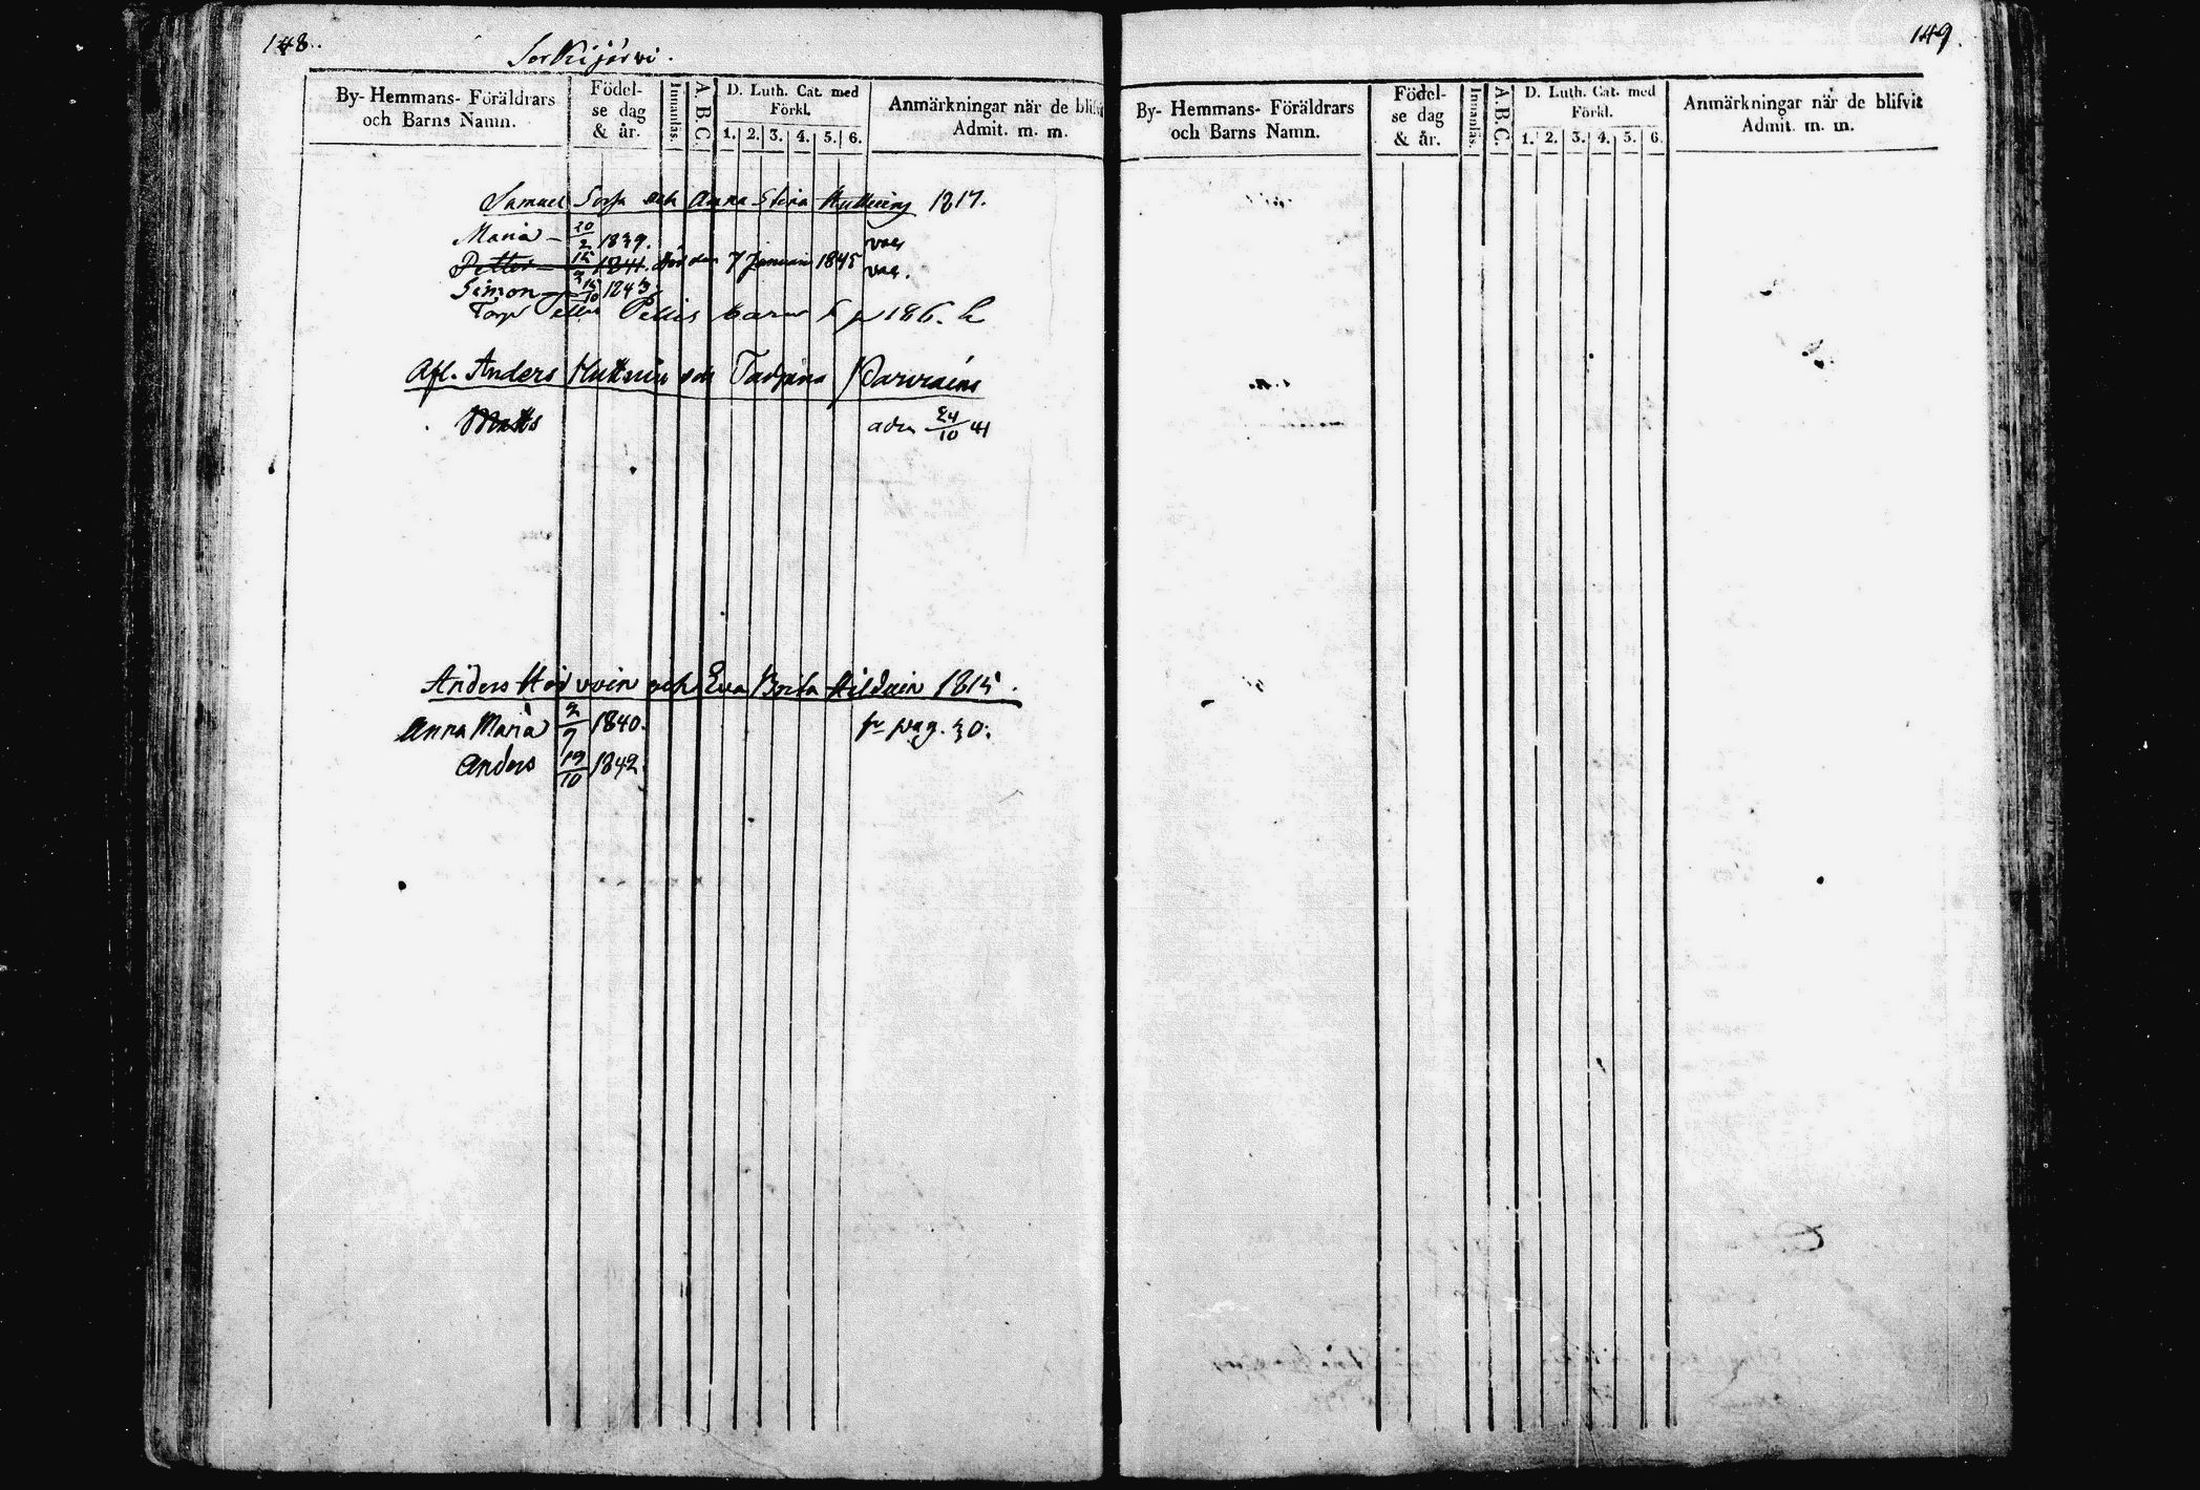 148.
Sorkijärvi.
By- Hemmans- Föräldrars och Barns Namn.
Födel- se dag & år.
Innanläs.
A. B. C.
D. Luth. Cat. med Förkl.
1. 2. 3. 4. 5. 6.
Anmärkningar när de blifvit Admit. m. m.
Samuel och Anna Stina 1817.
Maria 20/2 1839. vac
Petter 15/2 1841. död den 7 Januari 1845 vac.
Simon 1843
Torp Pellis barn p 186.
Afl. Anders och
Matts adm 24/10 41
Anders och Eva 1815.
Anna Maria 2/7 1840. fr pag. 30.
Anders 19/10 1842.
149.
By- Hemmans- Föräldrars och Barns Namn.
Födel- se dag & år.
Innanläs.
A. B. C.
D. Luth. Cat. med Förkl.
1. 2. 3. 4. 5. 6.
Anmärkningar när de blifvit Admit. m. m.